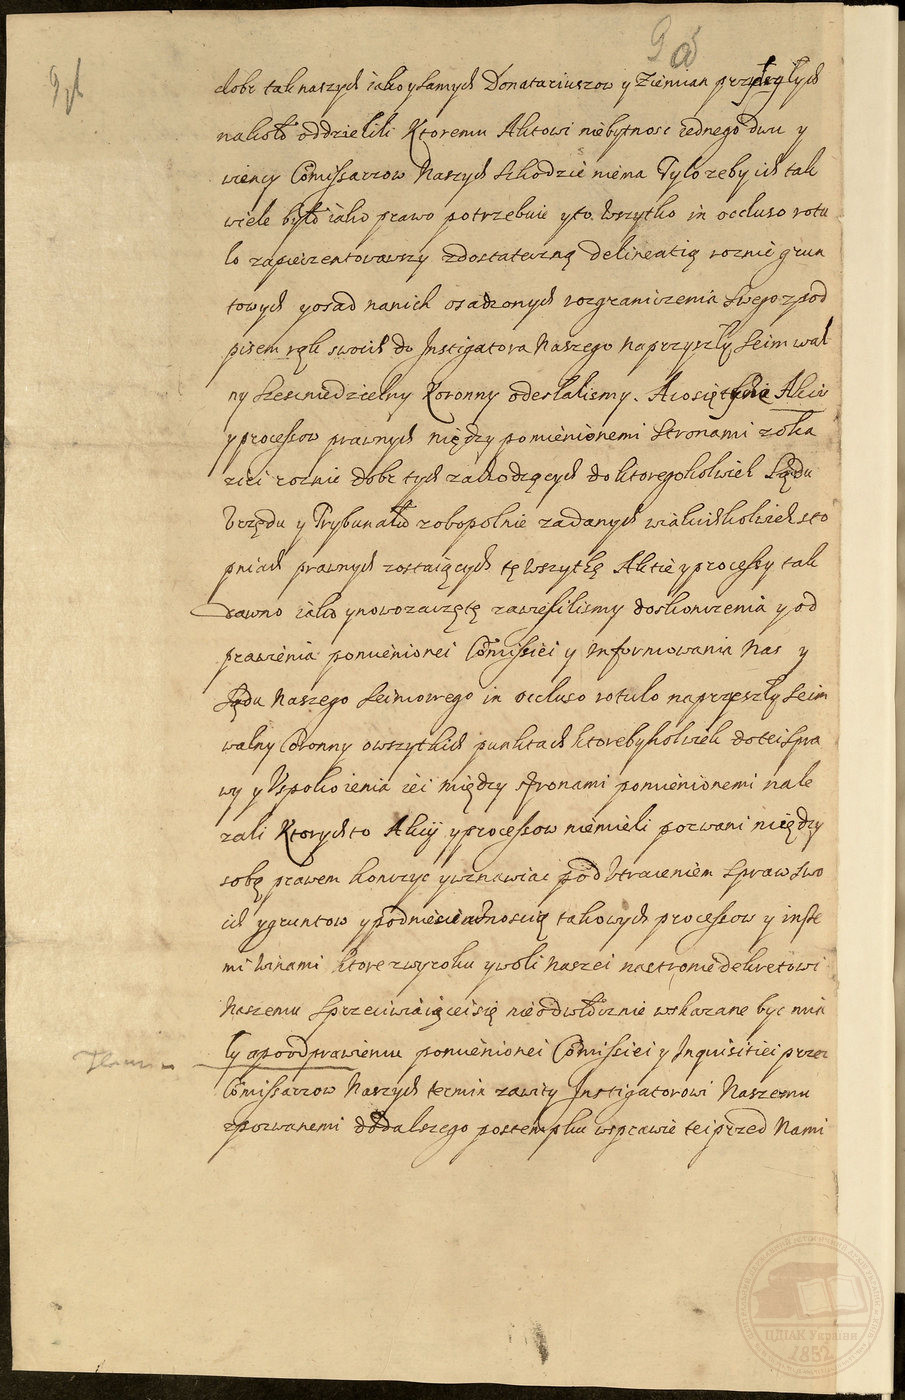 dobr tak naszych iako y samych Donatariuszow y Ziemian przyległych
nakoło oddzielili Ktoremu Aktowi niebytnosc iednego dwu y
wiency Comissarzow Naszych szkodzić niema Tylo zeby ich tak
wiele było iako prawo potrzebuie y to wszytko in occluso rotu
lo zapieczentowawszy z dostateczną delineatią roznie grun
towych y osad nanich osadzonych rozgraniczenia swego z pod
pisem rąk swoich do Instigatora Naszego na przyszły Seim wal
ny szescniedzielny Koronny odesłalismy. A co się tknie Akcii
y processow prawnych między pomienionemi stronami z oka
ziei roznie dobr tych zachodzących do ktoregokolwiek Sądu
Vrzędu y Trybunału zobopolnie zadanych w iakichkolwiek sto
pniach prawnych zostaiących tę wszytkę Aktie y processy tak
dawno iako y nowo zaczętę zawiesilismy do skonczenia y od
prawienia pomienionei Comissiei y informowania Nas y
Sądu Naszego Seimowego in occluso rotulo na przeszły Seim
walny Coronny o wszytkich punktach ktorebykolwiek do tei spra
wy y Vspokoienia iei między stronami pomienionemi nale
zali Ktorych to Akcij y processow niemieli pozwani między
sobą prawem konczyc y wznawiac pod Vtraceniem spraw swo
ich y gruntow y pod niesciadnoscią takowych processow y insze
mi winami ktore z wyroku y woli Naszei na stronie dekretowi
Naszemu sprzeciwiaiącei się nieodwłocznie wskazane byc mia
ły a po odprawieniu pomienionei Comissiei y Inquisitiei przez
Comissarzow Naszych termin zawity Instigatorowi Naszemu
z pozwanemi do dalszego postempku w sprawie tei przed Nami
ЦДІАК України
1852